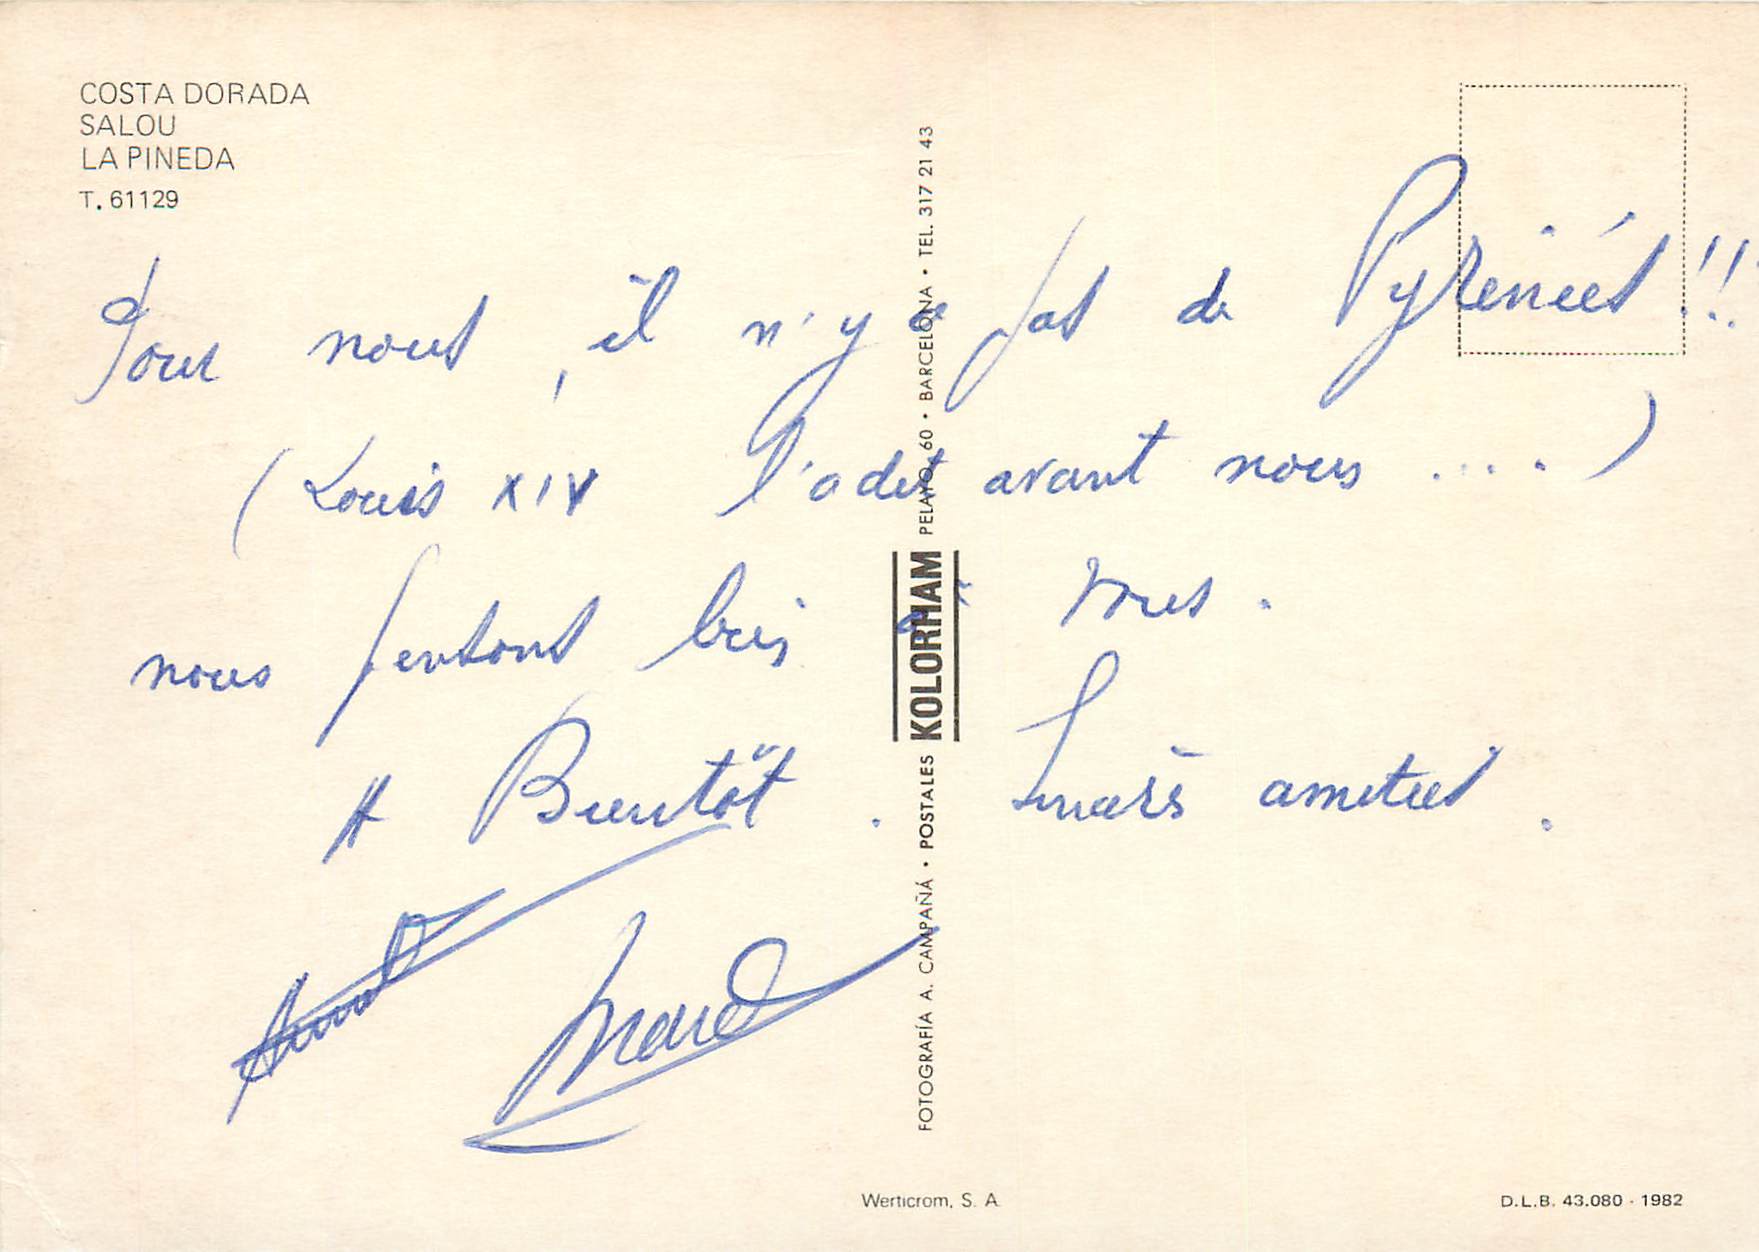 COSTA DORADA
SALOU
LA PINEDA
T. 61129
Pour nous, il n'y a pas de Pyrénées!!!
(Louis XIV l'a dit avant nous ....)
nous pensons bien à vous.
A Bientôt. Sincères amitiés.
FOTOGRAFÍA A. CAMPAÑÁ • POSTALES KOLORHAM PELAYO, 60 • BARCELONA • TEL. 317 21 43
Werticrom, S. A.
D.L.B. 43.080 - 1982